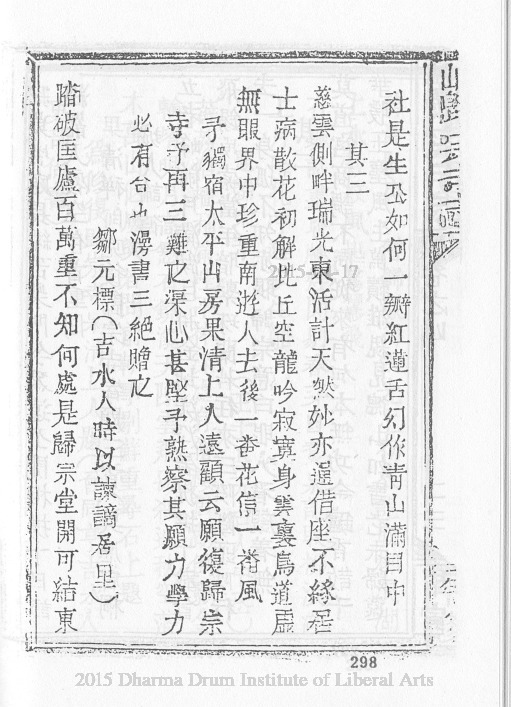 社是生公如何一瓣紅蓮舌幻作青山滿目中
其三
慈雲側畔瑞光東活計天然妙亦通借座不緣居
士病散花初解比丘空龍吟寂寞身雲裏鳥道虛
無眼界中珍重南遊人去後一番花信一番風
予獨宿太平山房果清上人遠顧云願復歸宗
寺予再三難之渠心甚堅予熟察其願力學力
必有合也漫書三絕贈之
鄒元標(吉水人時以諫謫居里)
踏破匡廬百萬重不知何處是歸宗堂開可結東
298
2015 Dharma Drum Institute of Liberal Arts